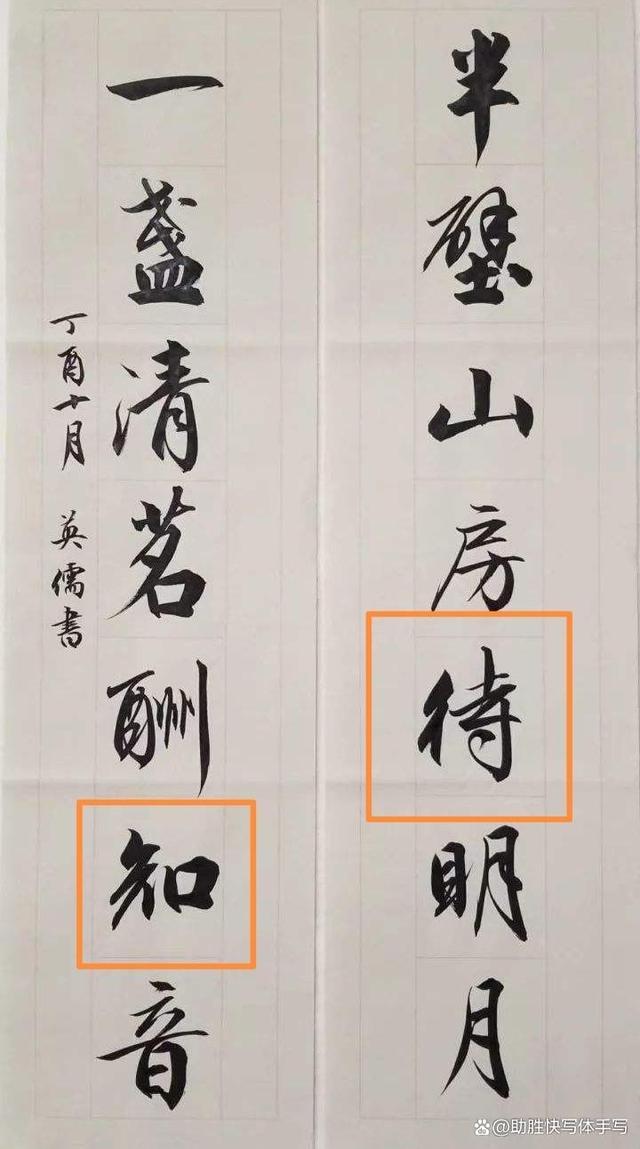 半壁山房待明月
一盏清茗酬知音
丁酉十月 英儒书
@助胜快写体手写